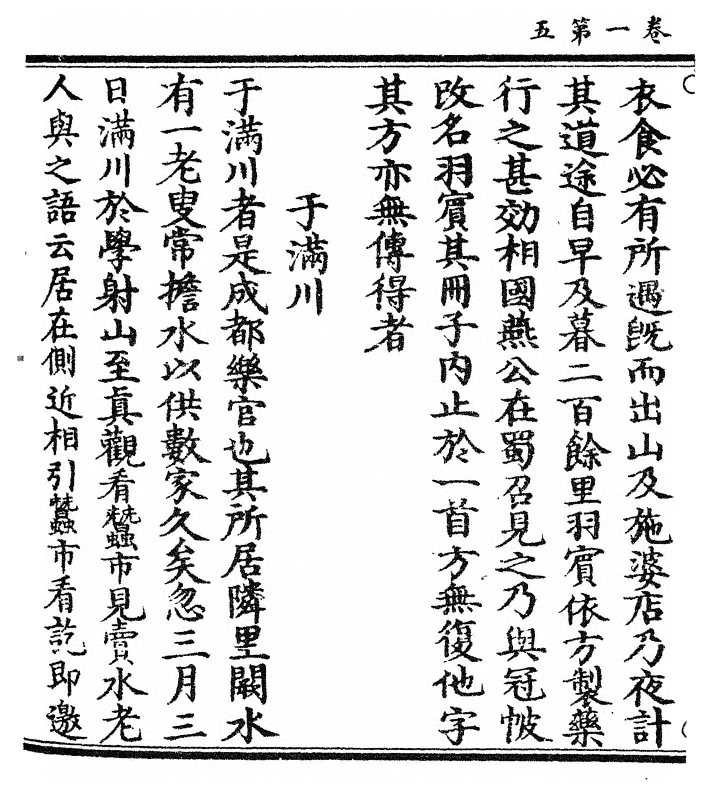 五第一卷
衣食必有所遇旣而出山及施婆店乃夜計
其道途自早及暮二百餘里羽賓依方製藥
行之甚効相國燕公在蜀召見之乃與冠帔
改名羽賓其冊子內止於一首方無復他字
其方亦無傳得者
于滿川
于滿川者是成都樂官也其所居隣里闕水
有一老叟常擔水以供數家久矣忽三月三
日滿川於學射山至眞觀看蠶市見賣水老
人與之語云居在側近相引蠶市看訖即邀